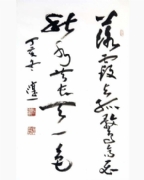 落霞与孤鹜齐飞
秋水共长天一色
丁亥